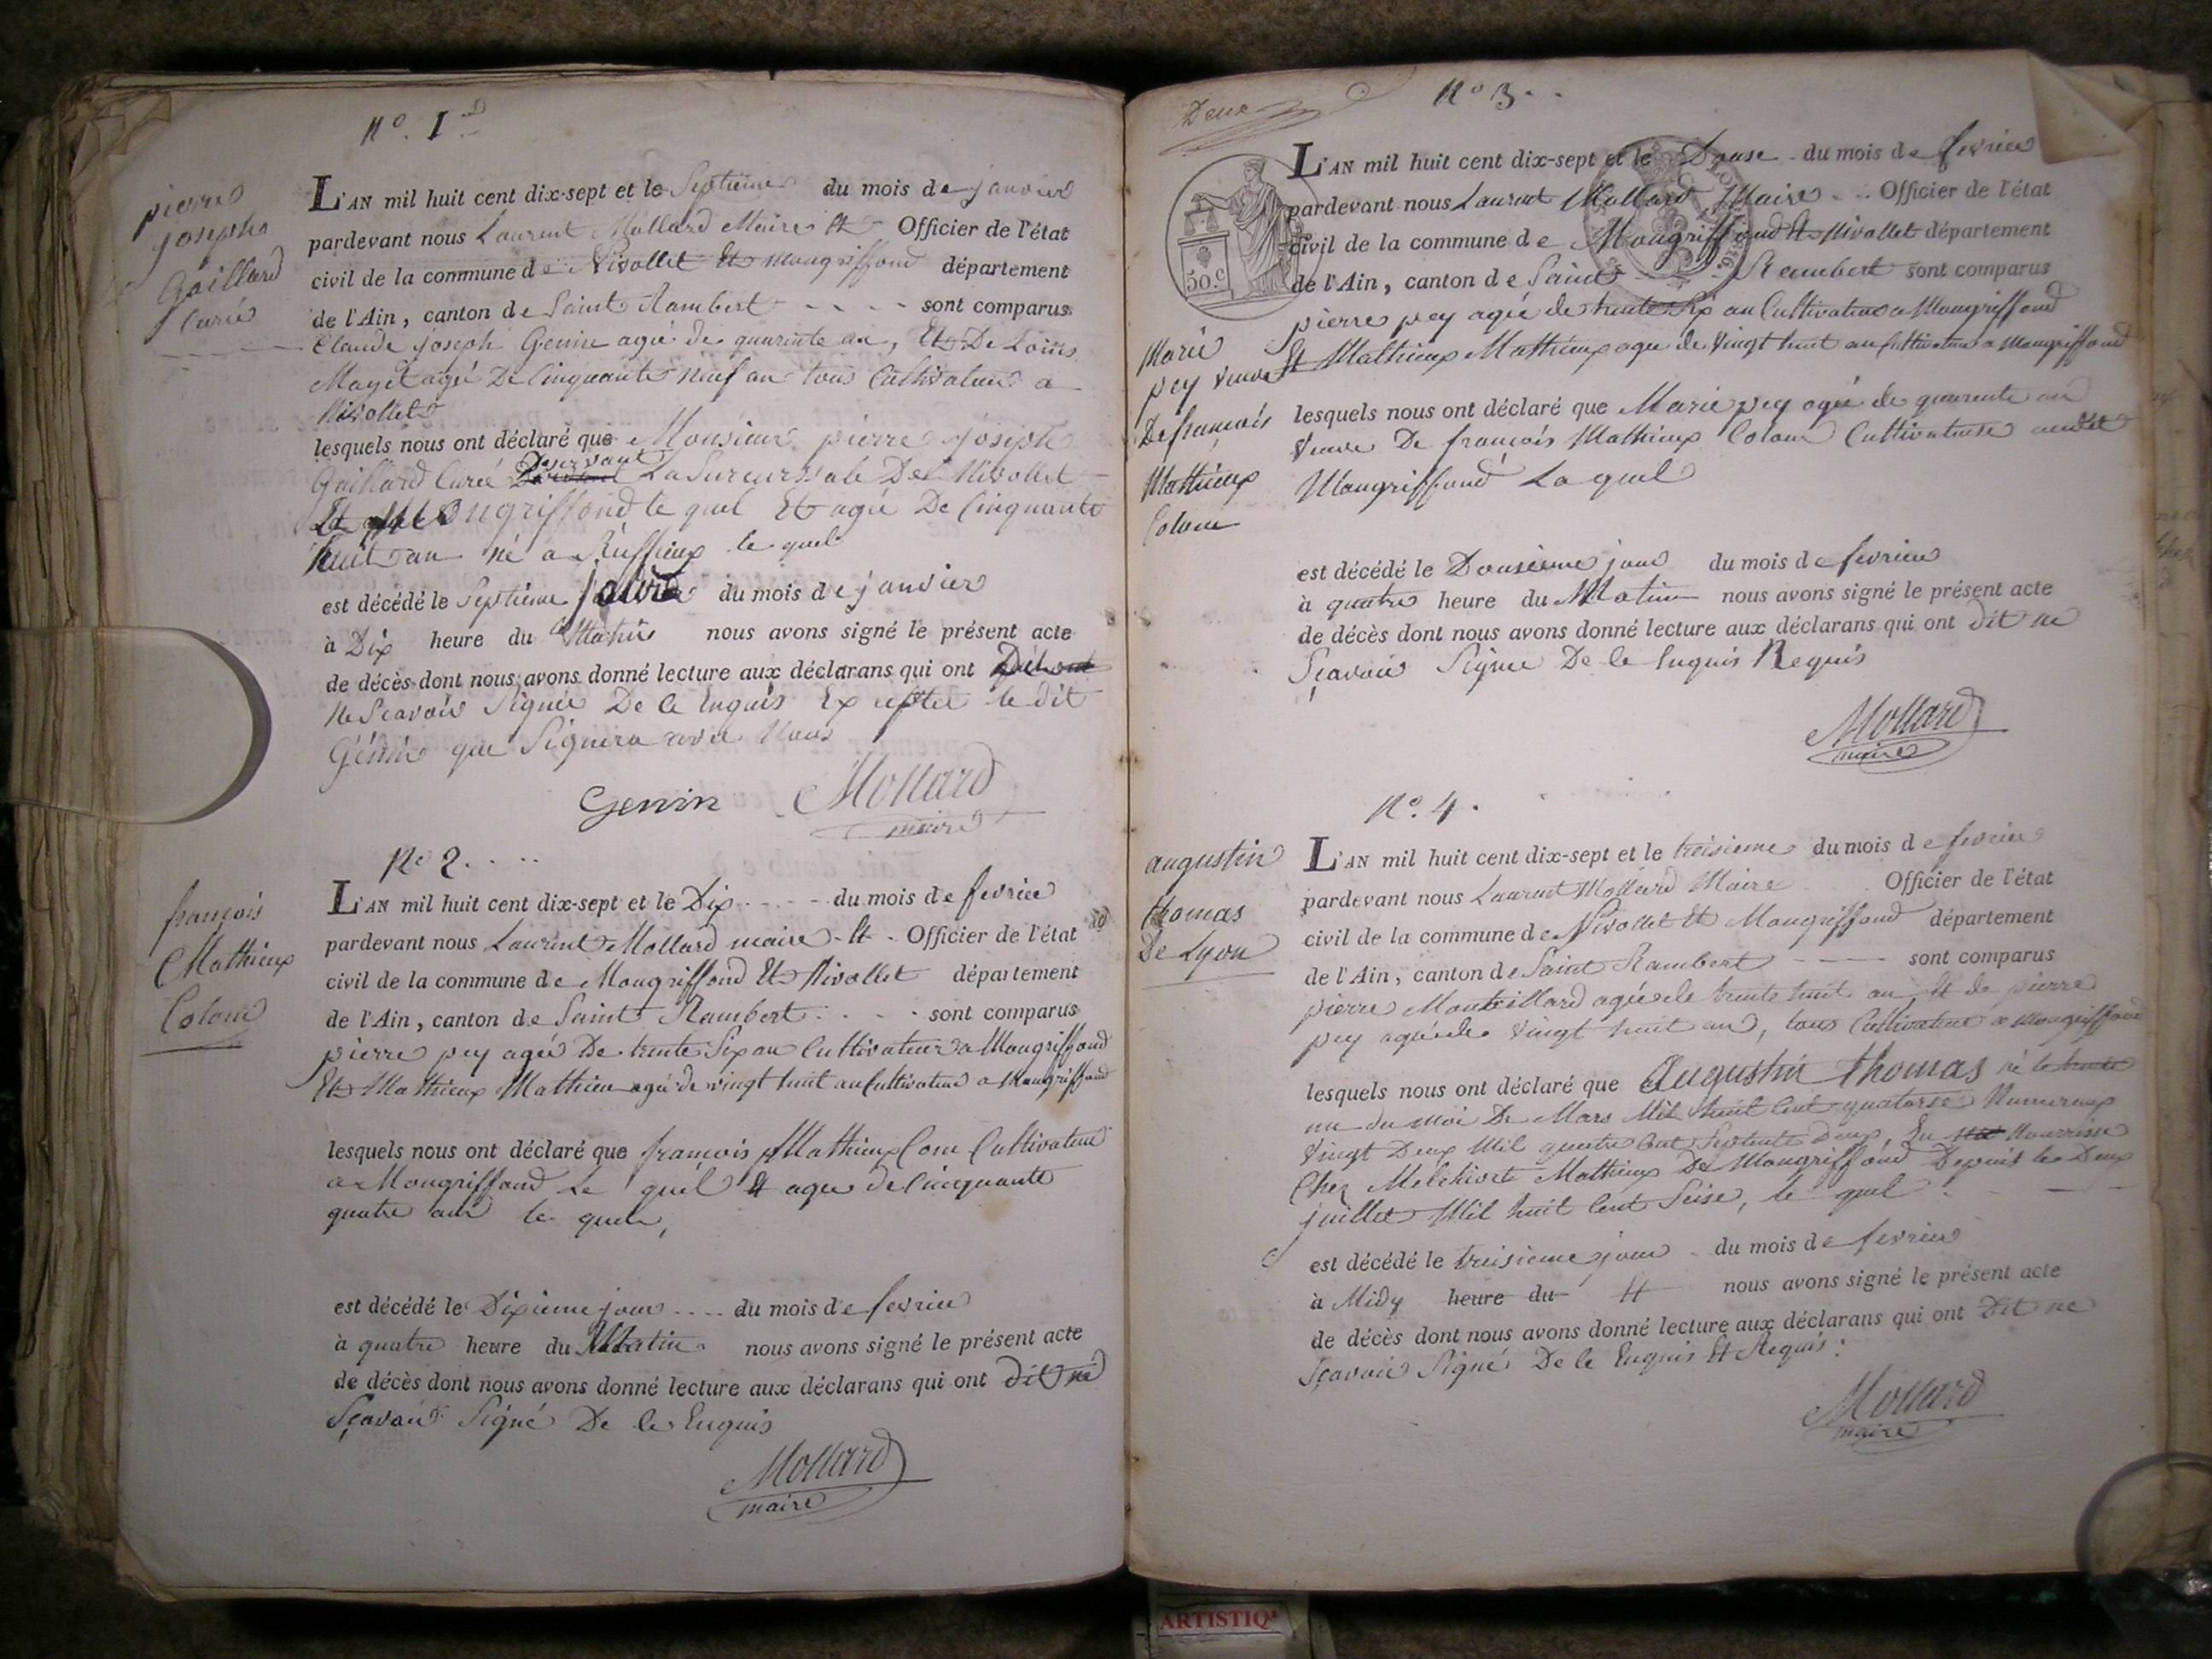 N°. 1er
pierre
joseph
Gaillard
Curé
L'AN mil huit cent dix-sept et le Septieme du mois de janvier
pardevant nous Laurent Mollard Maire Officier de l'état
civil de la commune de Nivollet Et Mongriffond département
de l'Ain, canton de Saint Rambert sont comparus
Claude joseph Genin agé de quarente an, Et De Loüis
Mayet agé De Cinquante neuf an tous Cultivateur a
Nivollet
lesquels nous ont déclaré que Monsieur pierre joseph
Desservant
Gaillard Curé La Sucurssale De Nivollet
Et Mongriffond le quel Et agé De Cinquante
huit an né a Ruffieux le quel
est décédé le Septieme jour du mois de janvier
à Dix heure du Matin nous avons signé le présent acte
de décès dont nous avons donné lecture aux déclarans qui ont
Ne Scavoir Signé De Ce Enquis Excepter le dit
Génin que Signera avec Nous
Genin Mollard
maire
N° 2.
françois
Mathieux
Colom
L'AN mil huit cent dix-sept et le Dix du mois de fevrier
pardevant nous Laurent Mollard maire Officier de l'état
civil de la commune de Mongriffond Et Nivollet département
de l'Ain, canton de Saint Rambert sont comparus
pierre pey agé De trente Six an Cultivateur a Mongriffond
Et Mathieux Mathieu agé de vingt huit an Cultivateur a Mongriffond
lesquels nous ont déclaré que françois Mathieux Cultivateur
a Mongriffond Le quel Et agé de Cinquante
quatre an le quel,
est décédé le Dixieme jour du mois de fevrier
à quatre heure du Matin nous avons signé le présent acte
de décès dont nous avons donné lecture aux déclarans qui ont dit ne
Sçavoir Signé De Ce Enquis
Mollard
maire
Deux
N° 3.
50.c
Marie
pey veuve
De françois
Mathieux
Colom
L'AN mil huit cent dix-sept et le Douse du mois de fevrier
pardevant nous Laurent Mollard Maire Officier de l'état
civil de la commune de Mongriffond Et Nivollet département
de l'Ain, canton de Saint Rambert sont comparus
pierre pey agée de trente Six an Cultivateur a Mongriffond
Et Mathieux Mathieux agée de Vingt huit an Cultivateur a Mongriffond
lesquels nous ont déclaré que Marie pey agée de quarente an
Veuve De françois Mathieux Colom Cultivateuse audit
Mongriffond La quel
est décédé le Dousieme jour du mois de fevrier
à quatre heure du Matin nous avons signé le présent acte
de décès dont nous avons donné lecture aux déclarans qui ont dit ne
Sçavoir Signe De Ce Enquis Requis
Mollard
maire
N°. 4.
augustin
thomas
De Lyon
L'AN mil huit cent dix-sept et le treisieme du mois de fevrier
pardevant nous Laurent Mollard Maire Officier de l'état
civil de la commune de Nivollet Et Mongriffond département
de l'Ain, canton de Saint Rambert sont comparus
pierre Montillard agée de trente huit an Et de pierre
pey agée de Vingt huit an, tous Cultivateur a Mongriffond
lesquels nous ont déclaré que Augustin thomas né le trente
un du moi De Mars Mil huit Cent quatorse Numeraux
Vingt Deux Mil quatre Cent Septente Deux, En Nourrisse
Chez Melchiort Mathieux De Mongriffond Depuis le Deux
juillet Mil huit Cent Seise, le quel
est décédé le treisieme jour du mois de fevrier
à Midy heure du nous avons signé le présent acte
de décès dont nous avons donné lecture aux déclarans qui ont Dit ne
Sçavoir Signé De Ce Enquis Et Requis:
Mollard
maire
ARTISTIQ